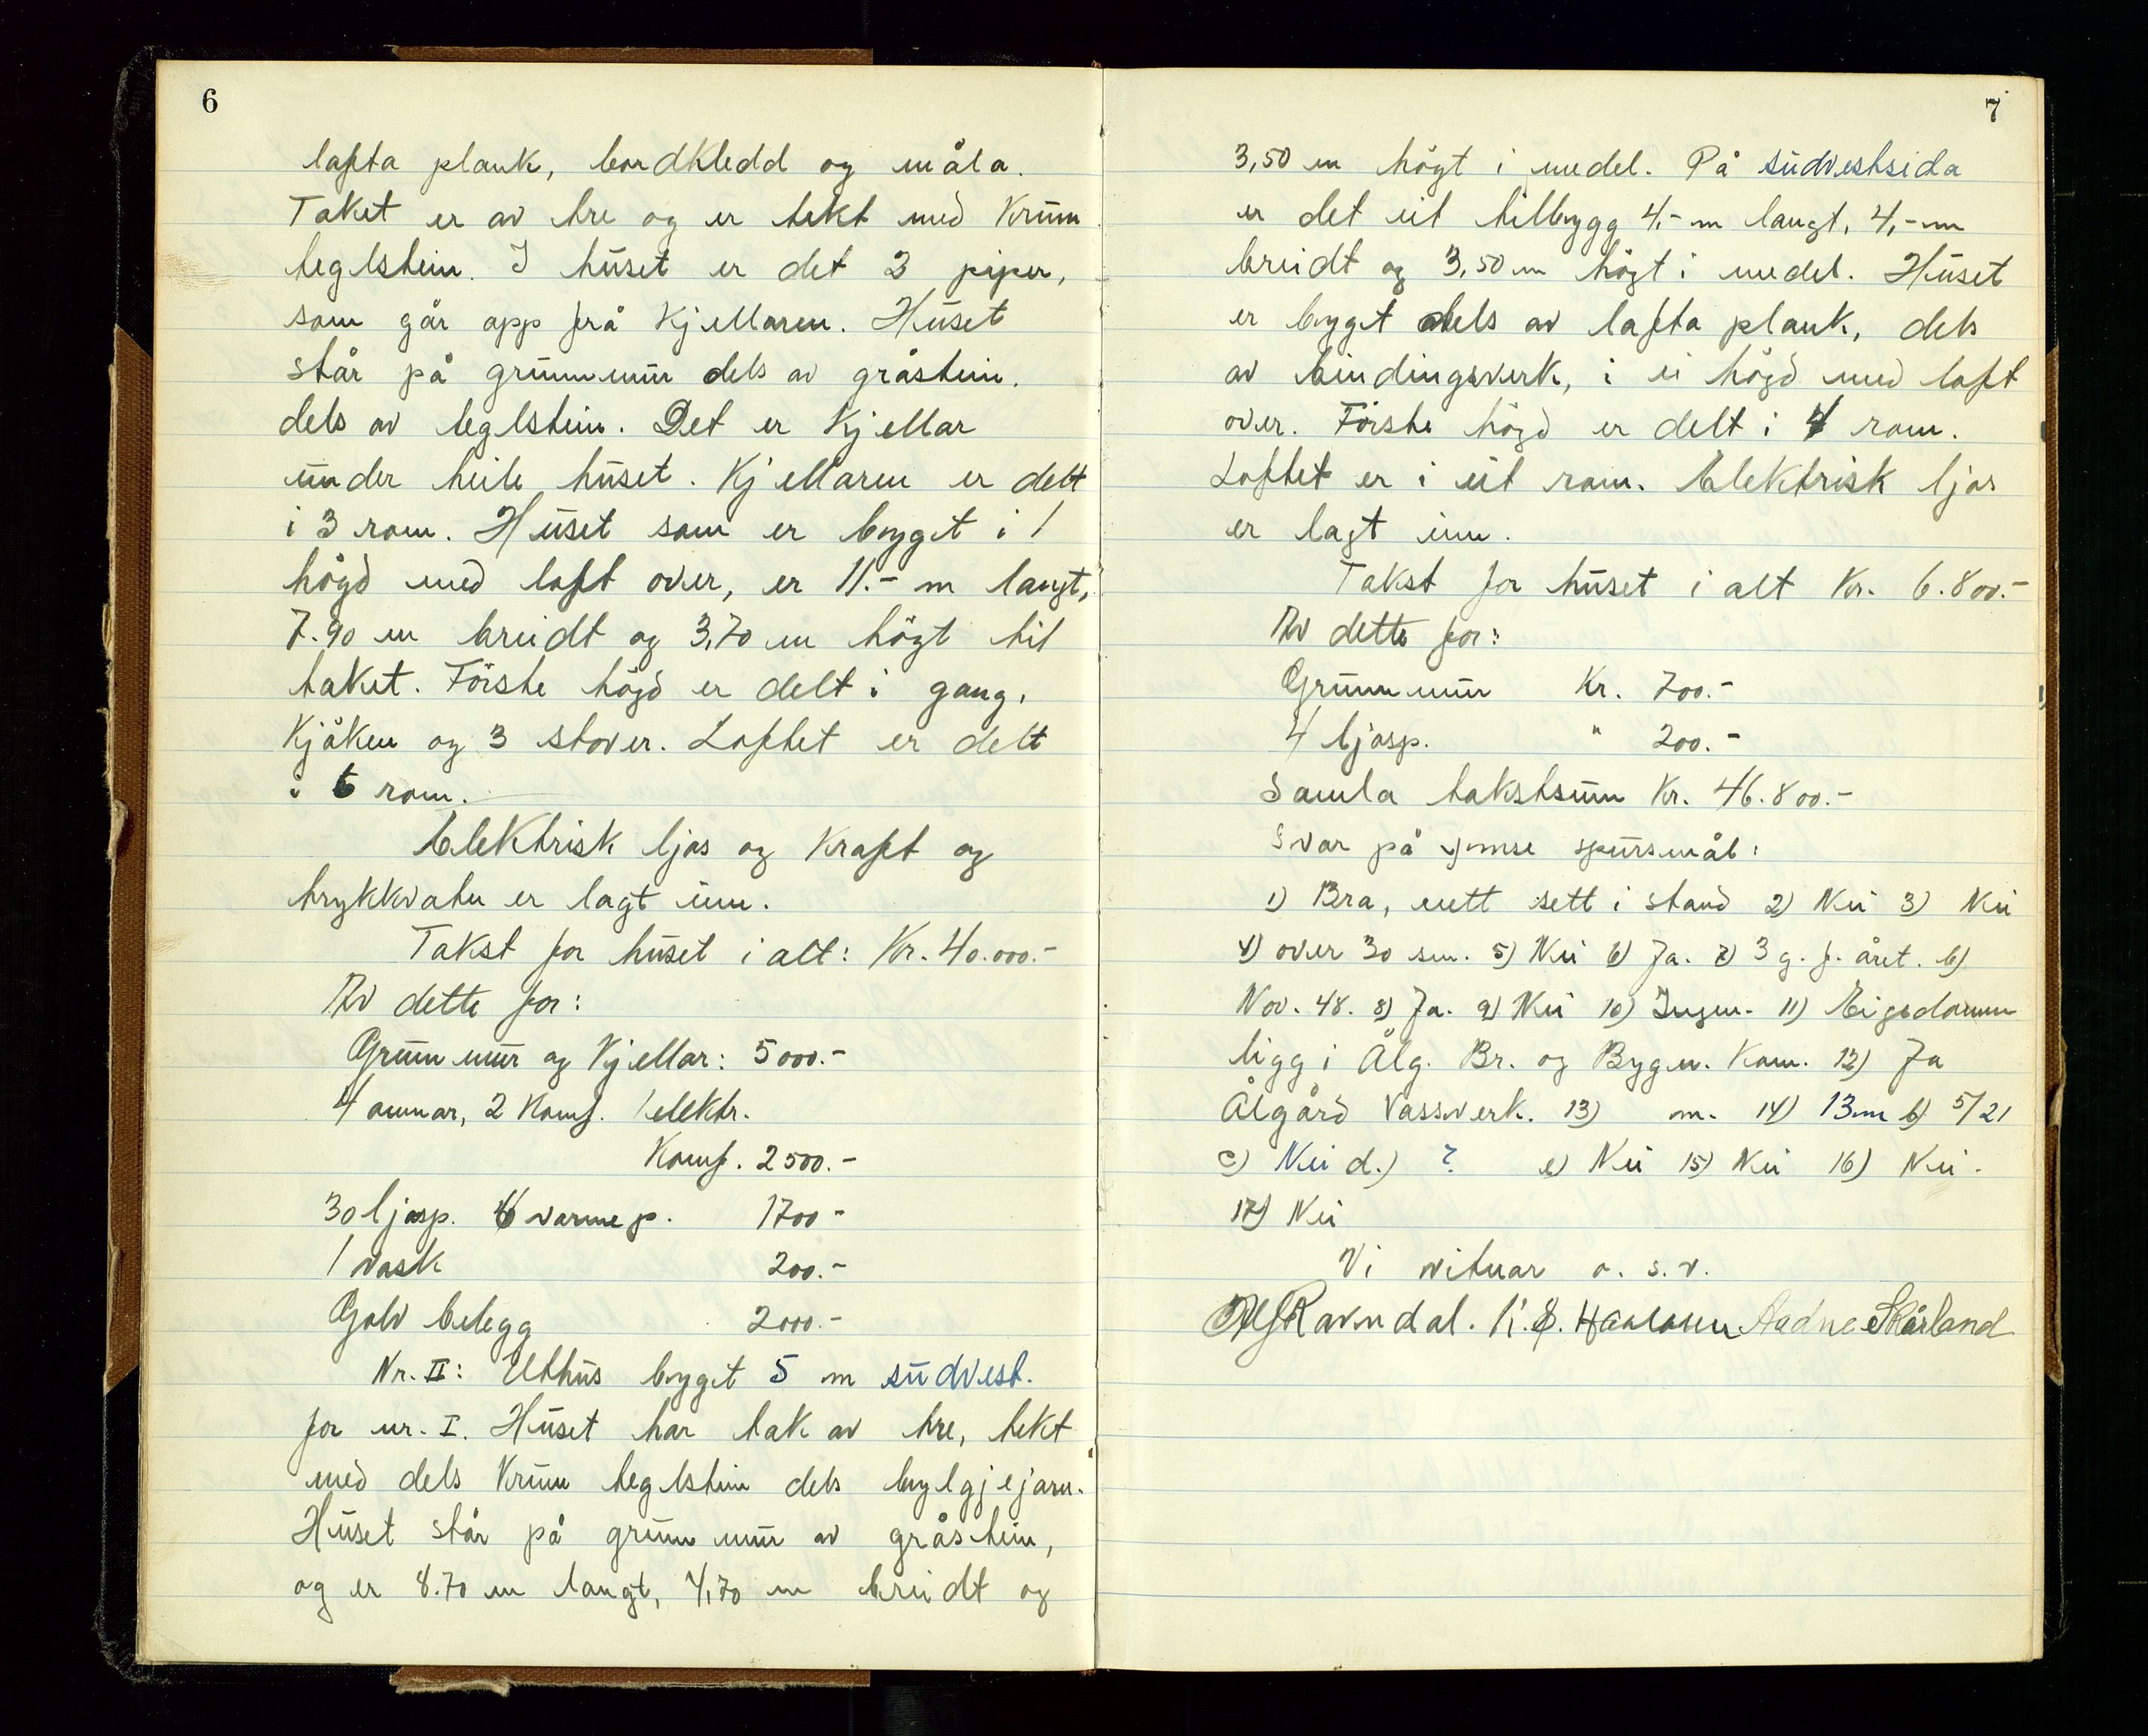 6
lafta plank, bordkledd og måla.
Taket er av tre og er tekt med krum
teglstein. I huset er det 2 piper,
som går opp frå kjellaren. Huset
står på grunnmur dels av gråstein.
dels av teglstein. Det er kjellar
under heile huset. Kjellaren er delt
i 3 rom. Huset som er bygt i 1
högd med loft over, er 11.- m langt,
7.90 m breidt og 3,70 m högt til
taket. Förste högd er delt i gang,
kjöken og 3 stover. Loftet er delt
i 6 rom.
Elektrisk ljos og kraft og
trykkvatn er lagt inn.
Takst for huset i alt: Kr. 40.000.-
Av dette for:
Grunnmur og kjellar: 5000.-
4 omnar, 2 komf. 1 elektr.
Komf. 2500.-
30 ljosp. 6 varmep. 1700-
1 vask 200.-
Golv belegg 2000.-
Nr. II: Uthus bygt 5 m südvest.
for nr. I. Huset har tak av tre, tekt
med dels krum teglstein dels bylgjejarn.
Huset står på grunnmur av gråstein,
og er 8.70 m langt, 4,70 m breidt og
7
3,50 m högt i medel. På südvestsida
er det eit tilbygg 4,- m langt, 4,- m
breidt og 3,50 m högt i medel. Huset
er bygt dels av lafta plank, dels
av bindingsverk, i ei högd med loft
over. Förste högd er delt i 4 rom.
Loftet er i eit rom. Elektrisk ljos
er lagt inn.
Takst for huset i alt Kr. 6.800.-
Av dette for:
Grunnmur Kr. 700.-
4 ljosp. " 200.-
Samla takstsum Kr. 46.800.-
Svar på ymse spursmål:
1) Bra, nett sett i stand 2) Nei 3) Nei
4) over 30 sm. 5) Nei 6) Ja. 7) 3 g. p. året. b)
Nov. 48. 8) Ja. 9) Nei 10) Ingen. 11) Eigedomen
ligg i Ålg. Br. og Bygn. Kom. 12) Ja
Ålgård Vassverk. 13) m. 14) 13m b) 5/21
c) Nei d.) ? e) Nei 15) Nei 16) Nei.
17) Nei
Vi vitnar o. s. v.
Ravndal. Aadne Skårland